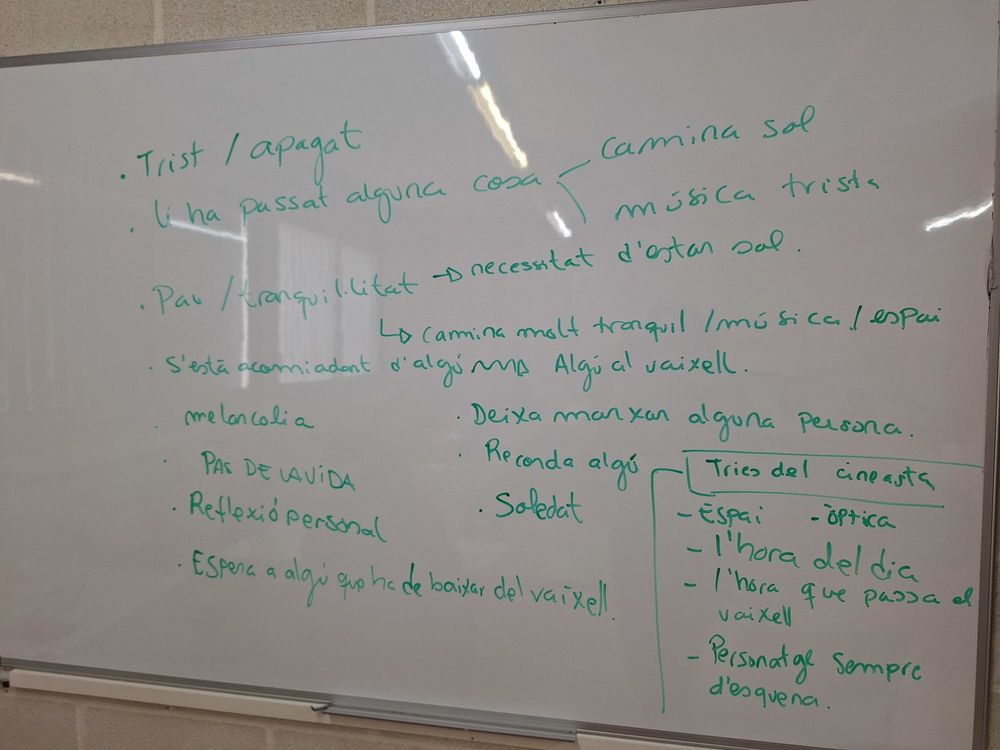 . Trist / apagat
. li ha passat alguna cosa
camina sol
música trista
. Pau / tranquil·litat → necessitat d'estar sol.
↳ camina molt tranquil / música / espai
. S'està acomiadant d'algú → Algú al vaixell.
. melancolia
. Deixa marxar alguna persona.
. PAS DE LA VIDA
. Recorda algú
. Reflexió personal
. Soledat
. Espera a algú que ha de baixar del vaixell.
Tries del cineasta
- Espai - òptica
- l'hora del dia
- l'hora que passa el
vaixell
- Personatge sempre
d'esquena.